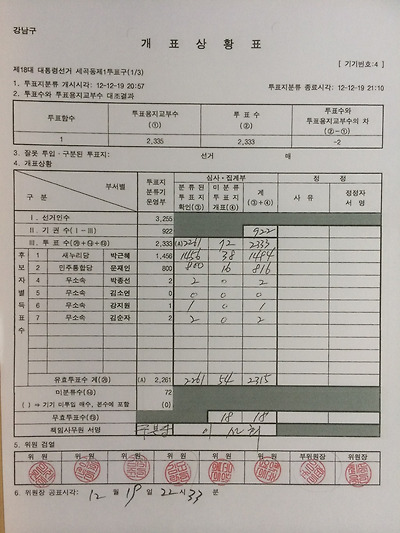 강남구
개 표 상 황 표
[ 기기번호:4 ]
제18대 대통령선거 세곡동제1투표구(1/3)
1. 투표지분류 개시시각: 12-12-19 20:57 투표지분류 종료시각: 12-12-19 21:10
2. 투표수와 투표용지교부수 대조결과
투표함수 투표용지교부수 (①) 투 표 수 (②) 투표수와 투표용지교부수의 차 (②-①)
1 2,335 2,333 -2
3. 잘못 투입·구분된 투표지: 선거 매
4. 개표상황
구 분 부서별 투표지 분류기 운영부 심사·집계부 정 정
분류된 투표지 확인(③) 미분류 투표지 개표(④) 계 (③+④) 사 유 정정자 서 명
Ⅰ. 선거인수 3,255
Ⅱ. 기 권 수 (Ⅰ-Ⅲ) 922 922
Ⅲ. 투 표 수 (㉮+㉯+㉰) 2,333 (A) 2261 72 2333
후보자별득표수
1 새누리당 박근혜 1,458 1456 38 1494
2 민주통합당 문재인 800 800 16 816
3 무소속 박종선 2 2 0 2
4 무소속 김소연 0 0 0 0
6 무소속 강지원 1 1 0 1
7 무소속 김순자 2 2 0 2
유효투표수 계(㉮) (A) 2,261 2261 54 2315
미분류수(㉯) 72
( ) ⇒ 기기 미투입 매수, 본수에 포함 (0)
무효투표수(㉰) 18 18
책임사무원 서명
5. 위원 검열
위 원 위 원 위 원 위 원 위 원 위 원 부위원장 위원장
6. 위원장 공표시각: 12 월 19 일 22 시 33 분